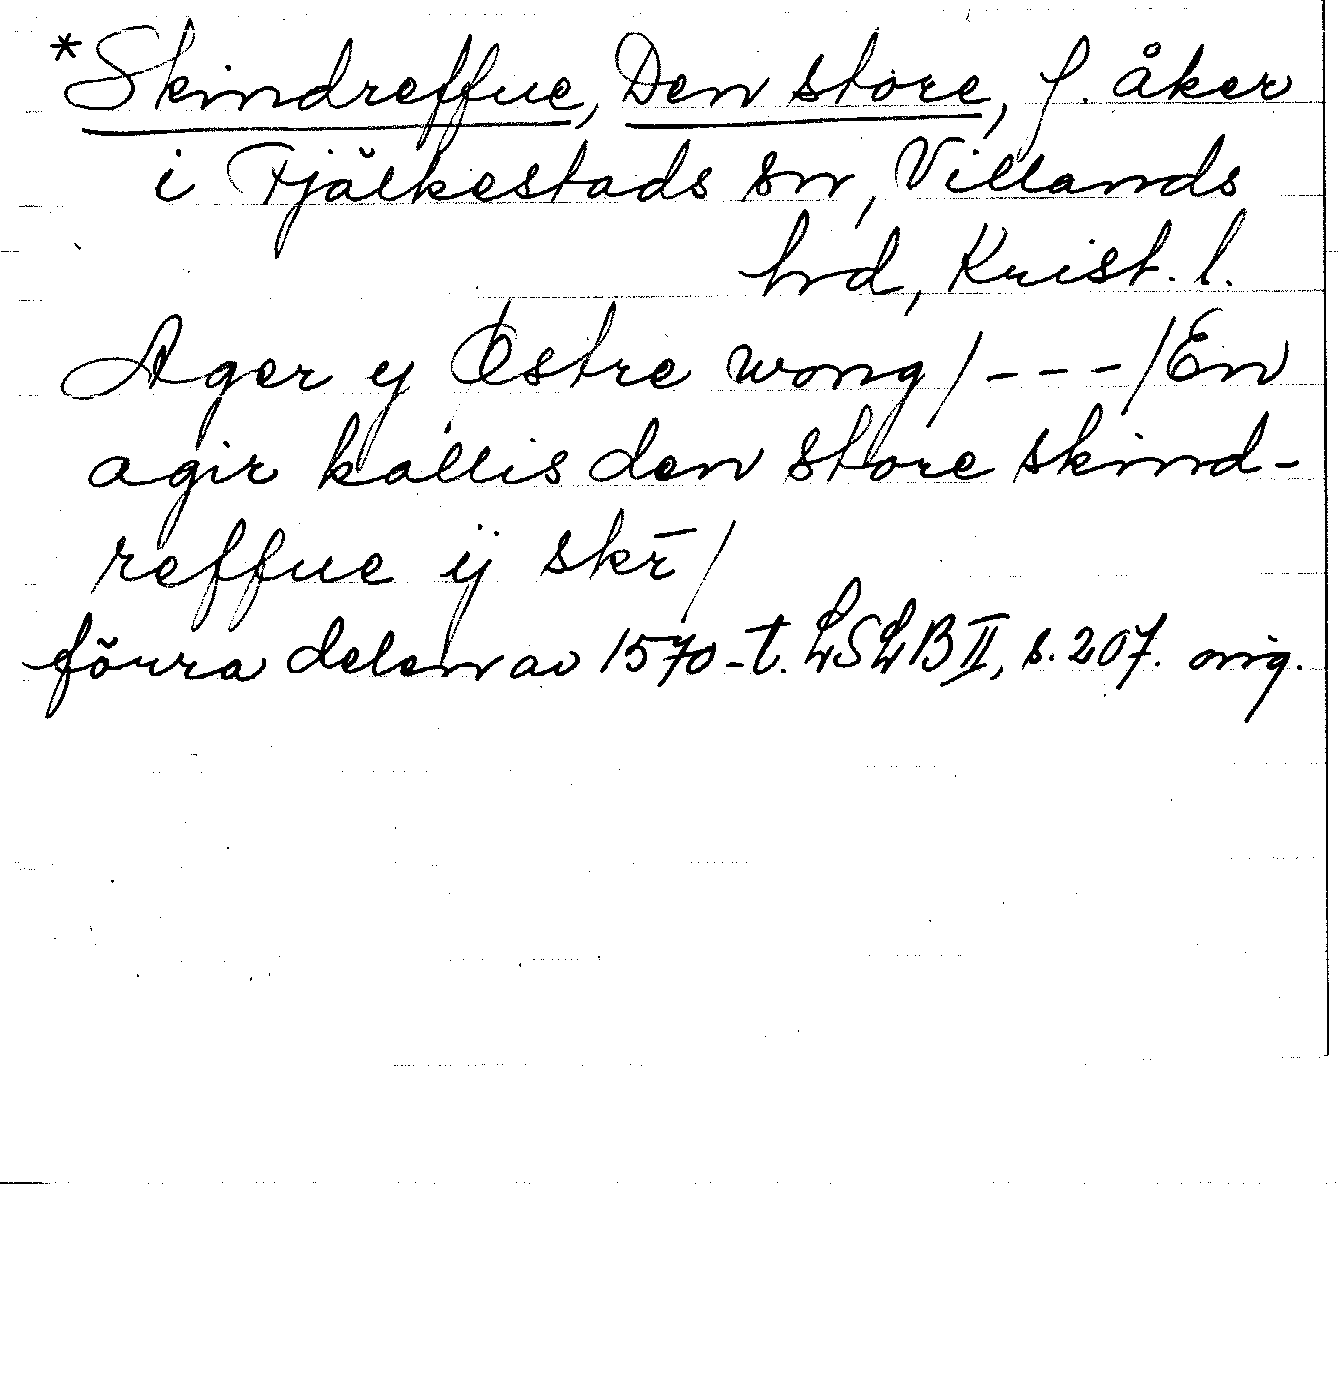 *Skindreffue, Den store, f. åker
i Fjälkestads sn, Villands
hd, Krist. l.
Ager y Østre wong/---/En
agir kallis den store skind-
reffue ÿ skr̄/
förra delen av 1570-t. LSLB II, s. 207. orig.